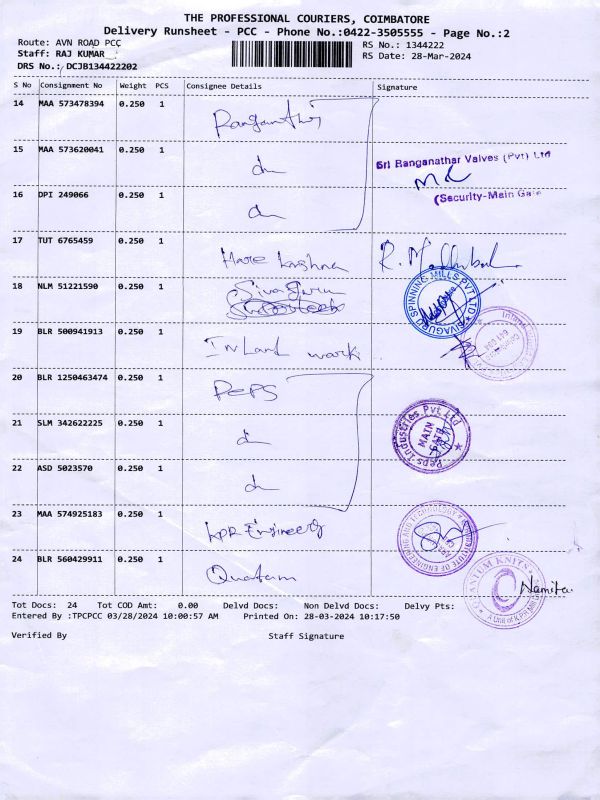 THE PROFESSIONAL COURIERS, COIMBATORE
Delivery Runsheet - PCC - Phone No.:0422-3505555 - Page No.:2
Route: AVN ROAD PCC
Staff: RAJ KUMAR
DRS No.: DCJB134422202
RS No.: 1344222
RS Date: 28-Mar-2024
S No Consignment No Weight PCS Consignee Details Signature
14 MAA 573478394 0.250 1
15 MAA 573620041 0.250 1
Sri Ranganathar Valves (Pvt) Ltd
16 DPI 249066 0.250 1
(Security-Main Gate
17 TUT 6765459 0.250 1 Hare krishna
18 NLM 51221590 0.250 1 Sivaguru
SIVAGURU SPINNING MILLS PVT LTD
19 BLR 500941913 0.250 1 Inland work
20 BLR 1250463474 0.250 1 PePS
21 SLM 342622225 0.250 1
Peps Industries Pvt Ltd
MAIN GATE
22 ASD 5023570 0.250 1
23 MAA 574925183 0.250 1 KPR Engineerg
INSTITUTE OF ENGINEERING AND TECHNOLOGY
24 BLR 560429911 0.250 1 Quatam
QUANTUM KNITS
Namita
Tot Docs: 24 Tot COD Amt: 0.00 Delvd Docs: Non Delvd Docs: Delvy Pts:
Entered By :TPCPCC 03/28/2024 10:00:57 AM Printed On: 28-03-2024 10:17:50
Verified By Staff Signature